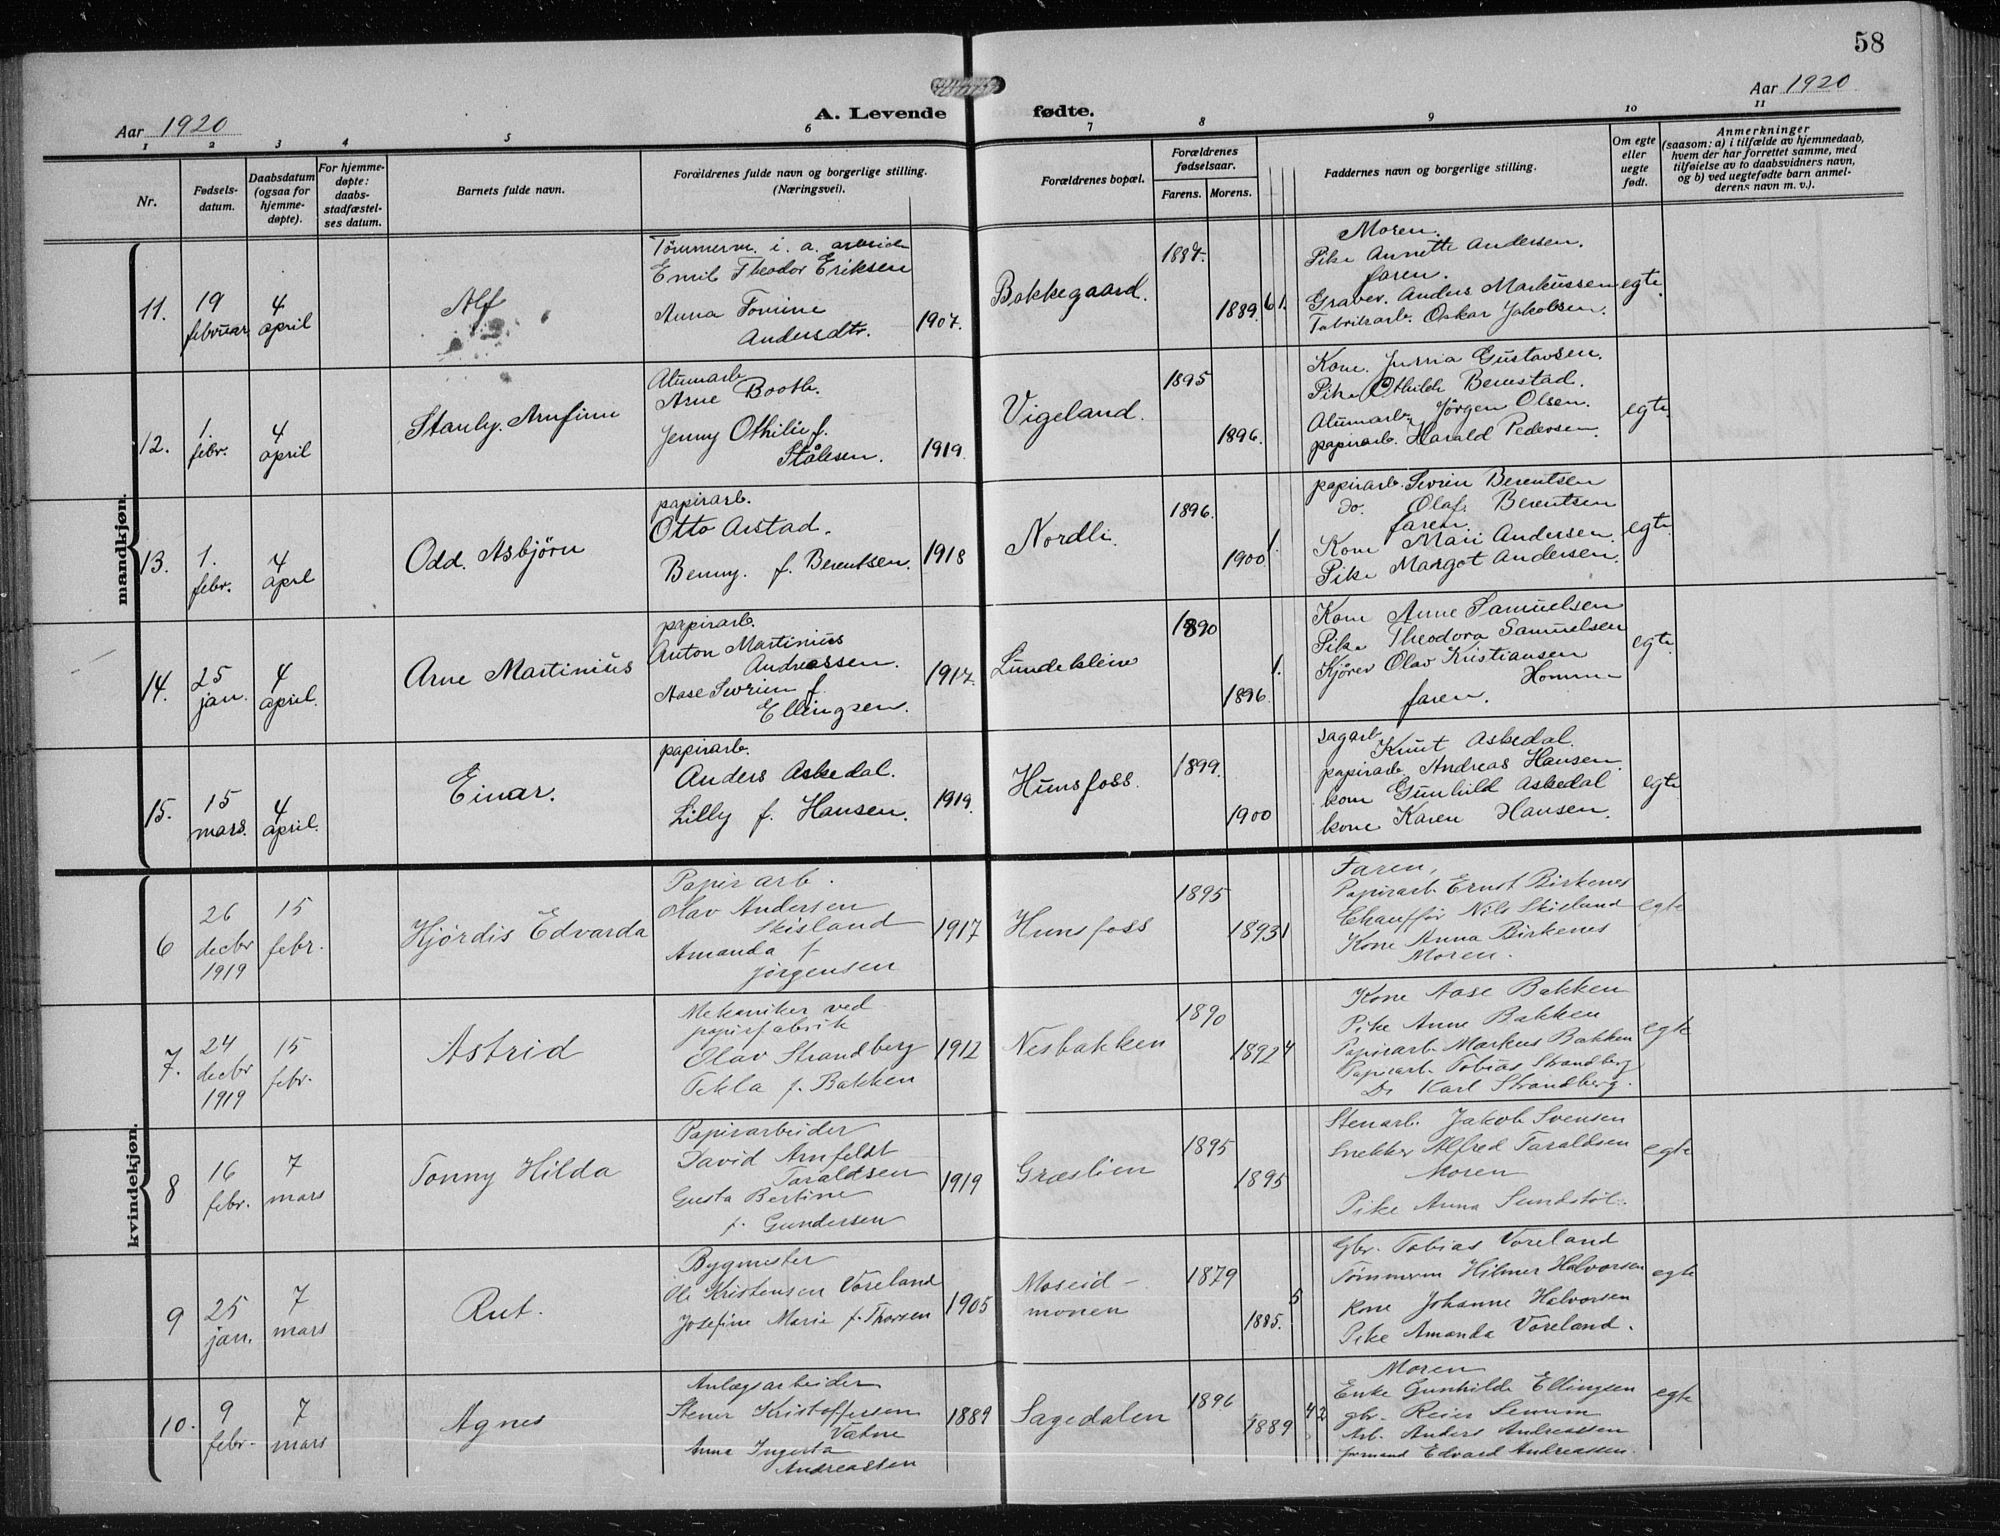 58
Aar 1920
A. Levende fødte.
Aar 1920
1 2 3 4 5 6 7 8 9 10 11
Nr.
Fødsels-
datum.
Daabsdatum
(ogsaa for
hjemme-
døpte).
For hjemme-
døpte:
daabs-
stadfæstel-
ses datum.
Barnets fulde navn.
Forældrenes fulde navn og borgerlige stilling.
(Næringsvei).
Forældrenes bopæl.
Forældrenes
fødselsaar.
Farens. Morens.
Faddernes navn og borgerlige stilling.
Om egte
eller
uegte
født.
Anmerkninger
(saasom: a) i tilfælde av hjemmedaab,
hvem der har forrettet samme, med
tilføielse av to daabsvidners navn,
og b) ved uegtefødte barn anmel-
derens navn m. v.).
mandkjøn.
11.
19
februar
4
april
Alf
Tømmerm. i. a. arbeide
Emil Theodor Eriksen
Anna Tomine
Andersdtr.
1907.
Bakkegaard.
1887.
1889.
6 1.
Moren.
Pike Annette Andersen.
faren.
Graver. Anders Markussen
Fabrikarb. Oskar Jakobsen.
egte.
12.
1.
febr.
4
april
Stanly. Arnfinn
Alumarb
Arne Booth.
Jenny Othilie f.
Stålesen.
1919.
Vigeland.
1895
1896.
Kone. Gustavsen.
Pike Othilde Berestad.
Alumarb. Jörgen Olsen.
papirarb. Harald Pedersen.
egte.
13.
1.
febr.
4
april
Odd. Asbjörn
papirarb.
Otto Arstad.
Benny. f. Berentsen.
1918
Nordli.
1896.
1900
1.
papirarb. Sevrin Berentsen
Do. Olaf. Berentsen
faren.
Kone Mari Andersen.
Pike Margot Andersen.
egte.
14.
25
jan.
4
april.
Arne Martinius
papirarb.
Anton Martinius
Andreassen.
Aase Sevrine f.
Ellingsen.
1917.
Lundekleiv
1890
1896
1.
Kone Anne Samuelsen
Pike Theodora Samuelsen
Kjörer Olav Kristiansen
Homme
faren.
egte.
15.
15
mars.
4
april.
Einar.
papirarb.
Anders Askedal.
Lilly f. Hansen.
1919.
Hunsfoss.
1899.
1900
sagarb.
Knut Askedal.
papirarb Andreas Hansen.
kone Gunhild Askedal
kone Karen Hansen.
egte
kvindekjøn.
6
26
decbr
1919
15
febr.
Hjørdis Edvarda
Papirarb.
Olav Andersen
Skisland
Amanda f
Jørgensen
1917
Hunsfoss
1895
1893
1
Faren,
Papirarb. Ernst Birkenes
Chauffør Nils Skisland
Kone Anna Birkenes
Moren.
egte
7.
24
decbr
1919
15
febr.
Astrid
Mekaniker ved
papirfabrik
Olav Strandberg
Tekla f. Bakken
1912
Nesbakken
1890
1892
4
Kone Aase Bakken
Pike Anne Bakken
Papirarb. Markus Bakken
Papirarb. Tobias Strandberg
Do Karl Strandberg.
egte
8
16
febr.
7
mars
Tonny Hilda
Papirarbeider
David Arnfeldt
Taraldsen
Gusta Bertine
f. Gundersen
1919
Græslien
1895
1895
Stenarb. Jakob Svensen
Snekker Alfred Taraldsen
Moren
Pike Anna Sundstøl.
egte
9
25
jan.
7
mars
Rut.
Bygmester
Ole Kristensen Voreland
Josefine Marie f. Thorsen
1905
Moseid-
monen
1879
1885.
5
Gbr. Tobias Voreland
Tømmerm Hilmer Halvorsen
Kone Johanne Halvorsen
Pike Amanda Voreland.
egte
10.
9
febr.
7
mars
Agnes
Anlægsarbeider
Stener Kristoffersen
Vatne
Anna Ingerta
Andreassen
1889
Sagedalen
1896
1889
4 2
Moren
Enke Gunhilde Ellingsen
gbr. Reier Semum
Arb. Anders Andreassen
formand Edvard Andreassen.
egte